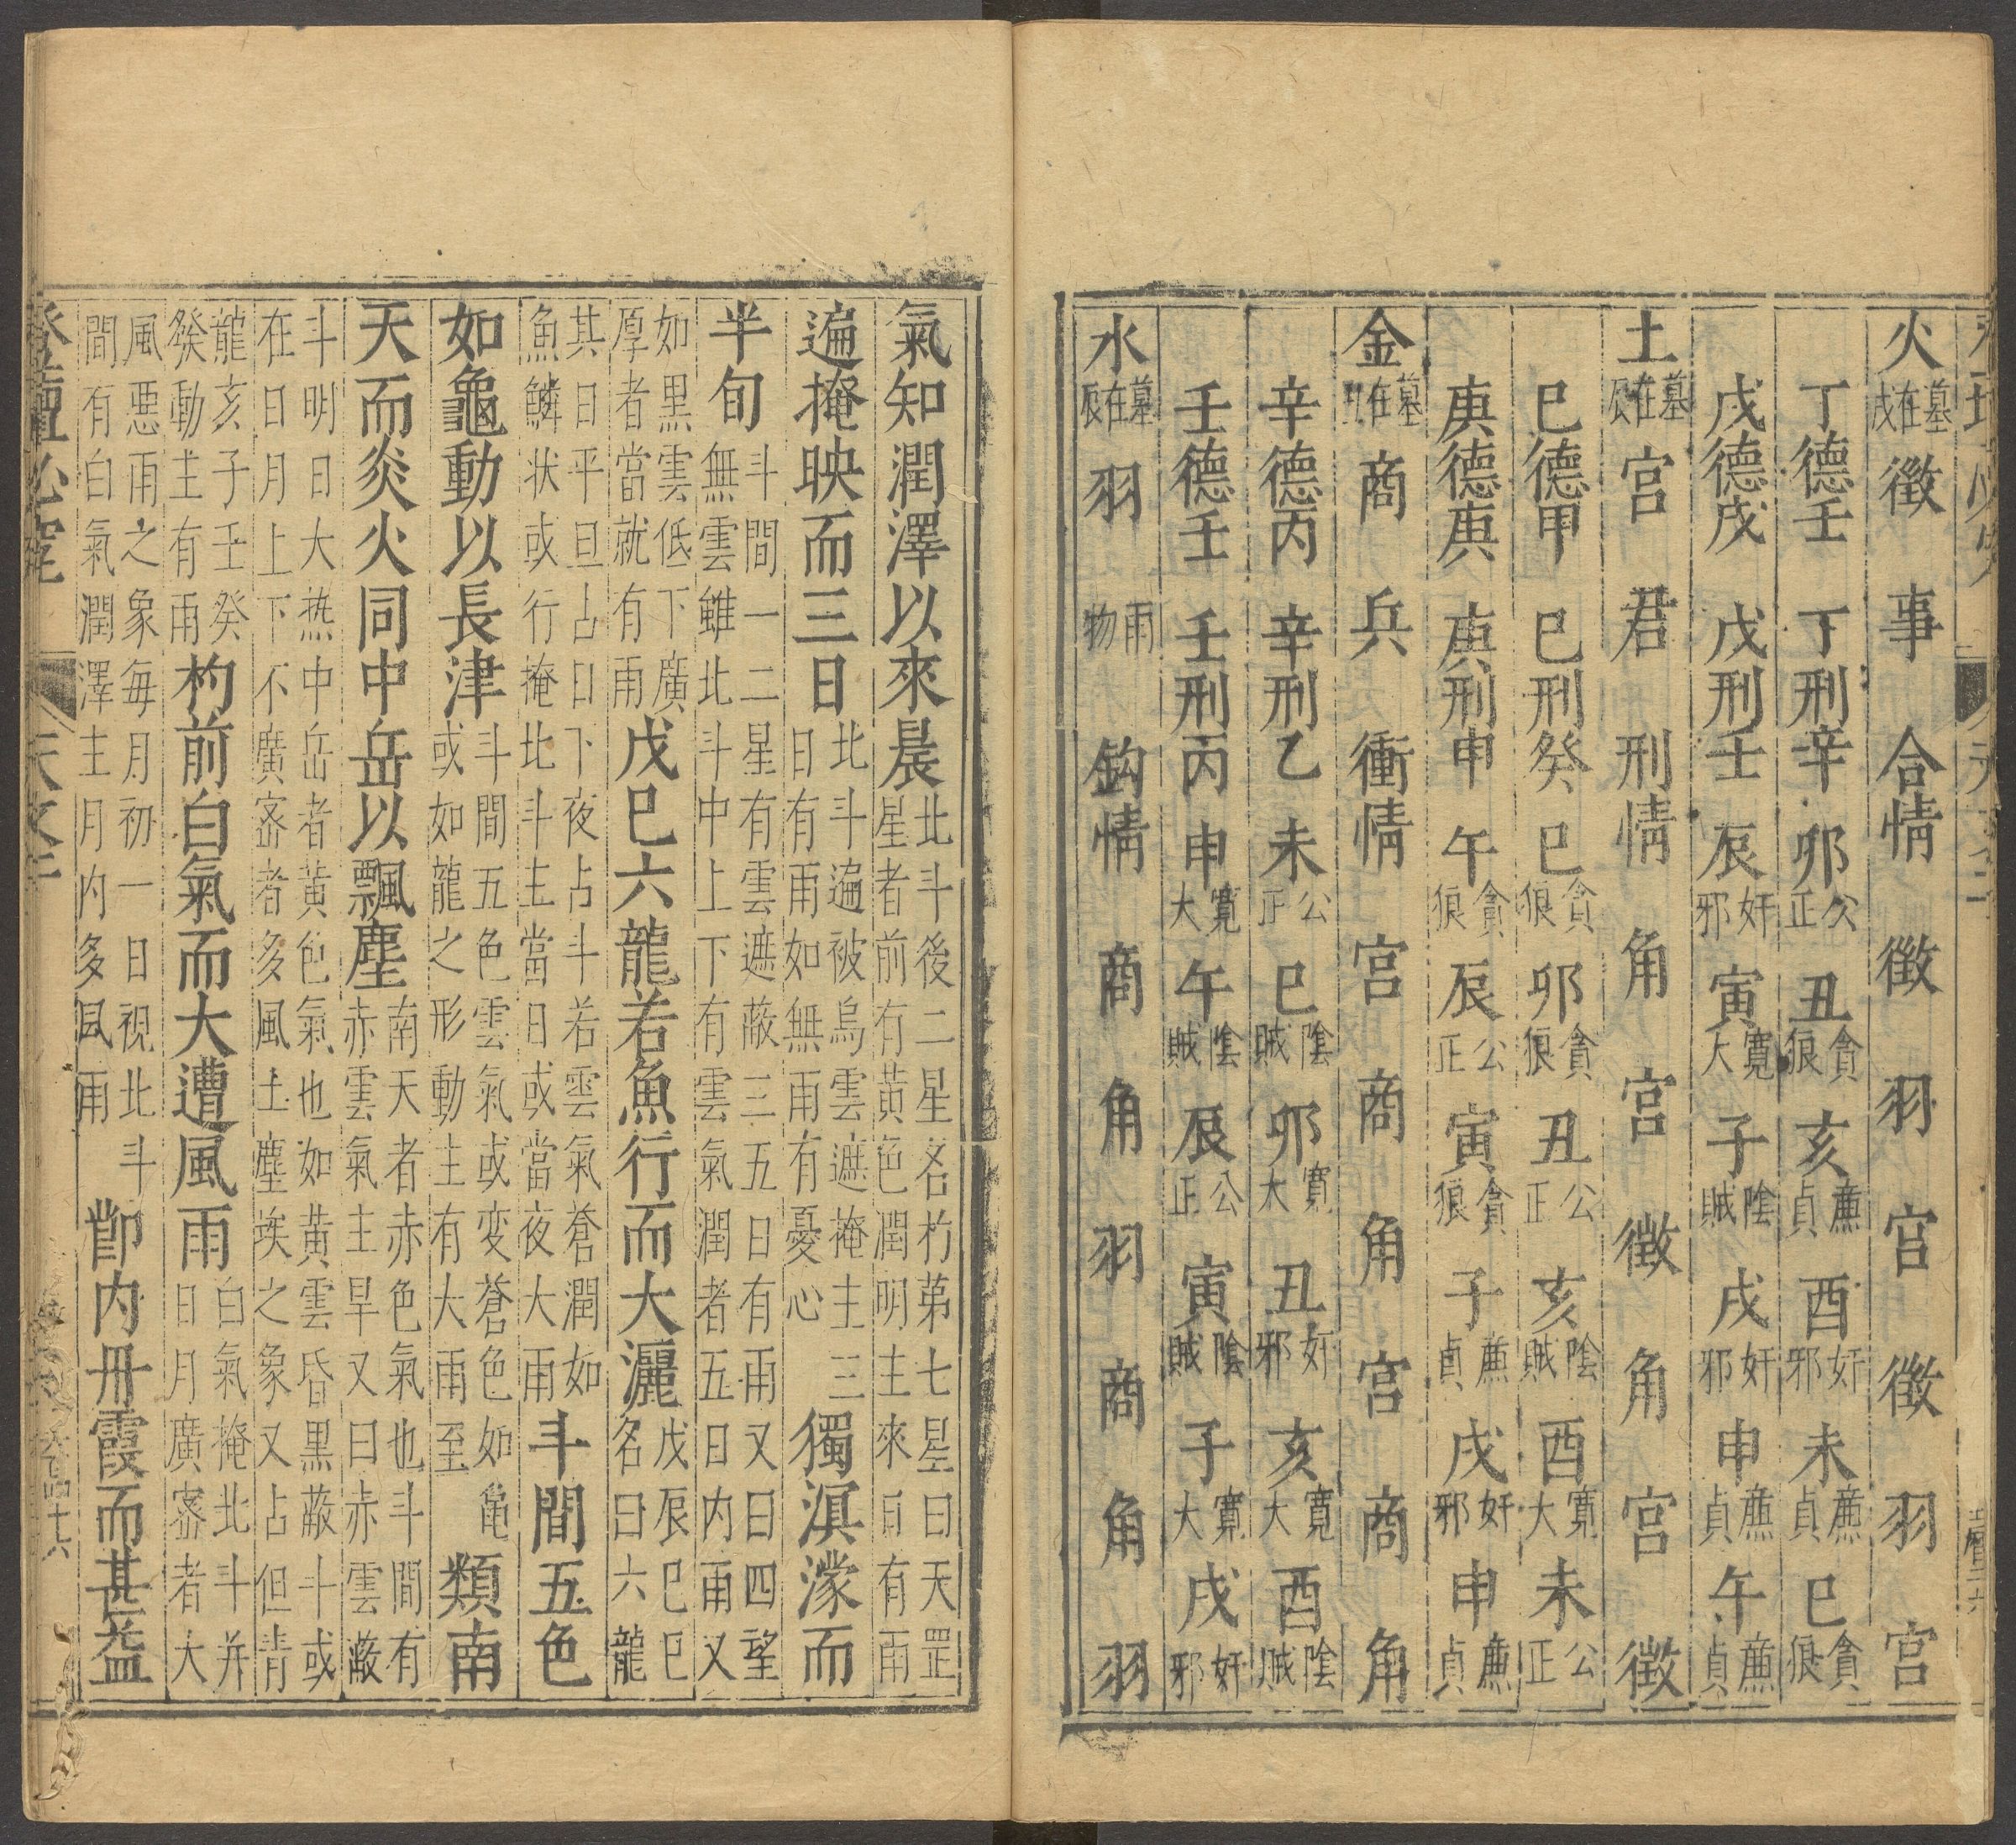 火墓在戌 徵 事 合情 徵 羽 宫 徵 羽 宫
丁德壬 丁刑辛 卯公正 丑貪狼 亥亷貞 酉奸邪 未亷貞 巳貪狼
戊德戊 戊刑壬 辰奸邪 寅寬大 子陰賊 戌奸邪 申亷貞 午亷貞
土墓在辰 宫 君 刑情 角 宫 徵 角 宫 徵
巳德甲 巳刑癸 巳貪狼 卯貪狼 丑公正 亥陰賊 酉寬大 未公正
庚德庚 庚刑申 午貪狼 辰公正 寅貪狼 子亷貞 戌奸邪 申亷貞
金墓在丑 商 兵 衝情 宫 商 角 宫 商 角
辛德丙 辛刑乙 未公正 巳陰賊 卯寬大 丑奸邪 亥寬大 酉陰賊
壬德壬 壬刑丙 申寬大 午陰賊 辰公正 寅陰賊 子寬大 戌奸邪
水墓在辰 羽 雨物 鈎情 商 角 羽 商 角 羽
氣知潤澤以來晨北斗後二星名杓第七星曰天罡星者前有黃色潤明主來日有雨
遍掩映而三日北斗遍被烏雲遮掩主三日有雨如無雨有憂心獨溟濛而
半旬斗間一二星有雲遮蔽三五日有雨又曰四望無雲雖北斗中上下有雲氣潤者五日内雨又
如黑雲低下廣厚者當就有雨戊巳六龍若魚行而大灑戊辰巳巳名曰六龍
其日平旦占日下夜占斗若雲氣蒼潤如魚鱗状或行掩北斗主當日或當夜大雨斗間五色
如龜動以長津斗間五色雲氣或变蒼色如龜或如龍之形動主有大雨至類南
天而炎火同中岳以飄塵南天者赤色氣也斗間有赤雲氣主旱又曰赤雲蔽
斗明日大热中岳者黃色氣也如黃雲昏黑蔽斗或在日月上下不廣密者多風土塵埃之象又占但青
龍亥子壬癸癸動主有雨杓前白氣而大遭風雨白氣掩北斗并日月廣密者大
風惡雨之象每月初一日視北斗間有白氣潤澤主月内多風雨卽内丹霞而甚益
登壇必究 天文 卷四十六